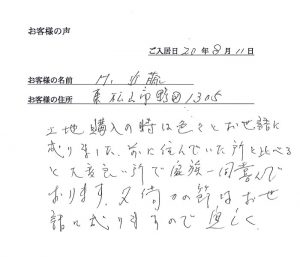 お客様の声
ご入居日 20年8月11日
お客様の名前 M. 加藤
お客様の住所 東松山市野田1305
土地購入の時は色々とお世話に
成りました。前に住んでいた所と比べる
と大変良い所で家族一同喜んで
おります。又何かの節はお世
話に成りますので宜しく。